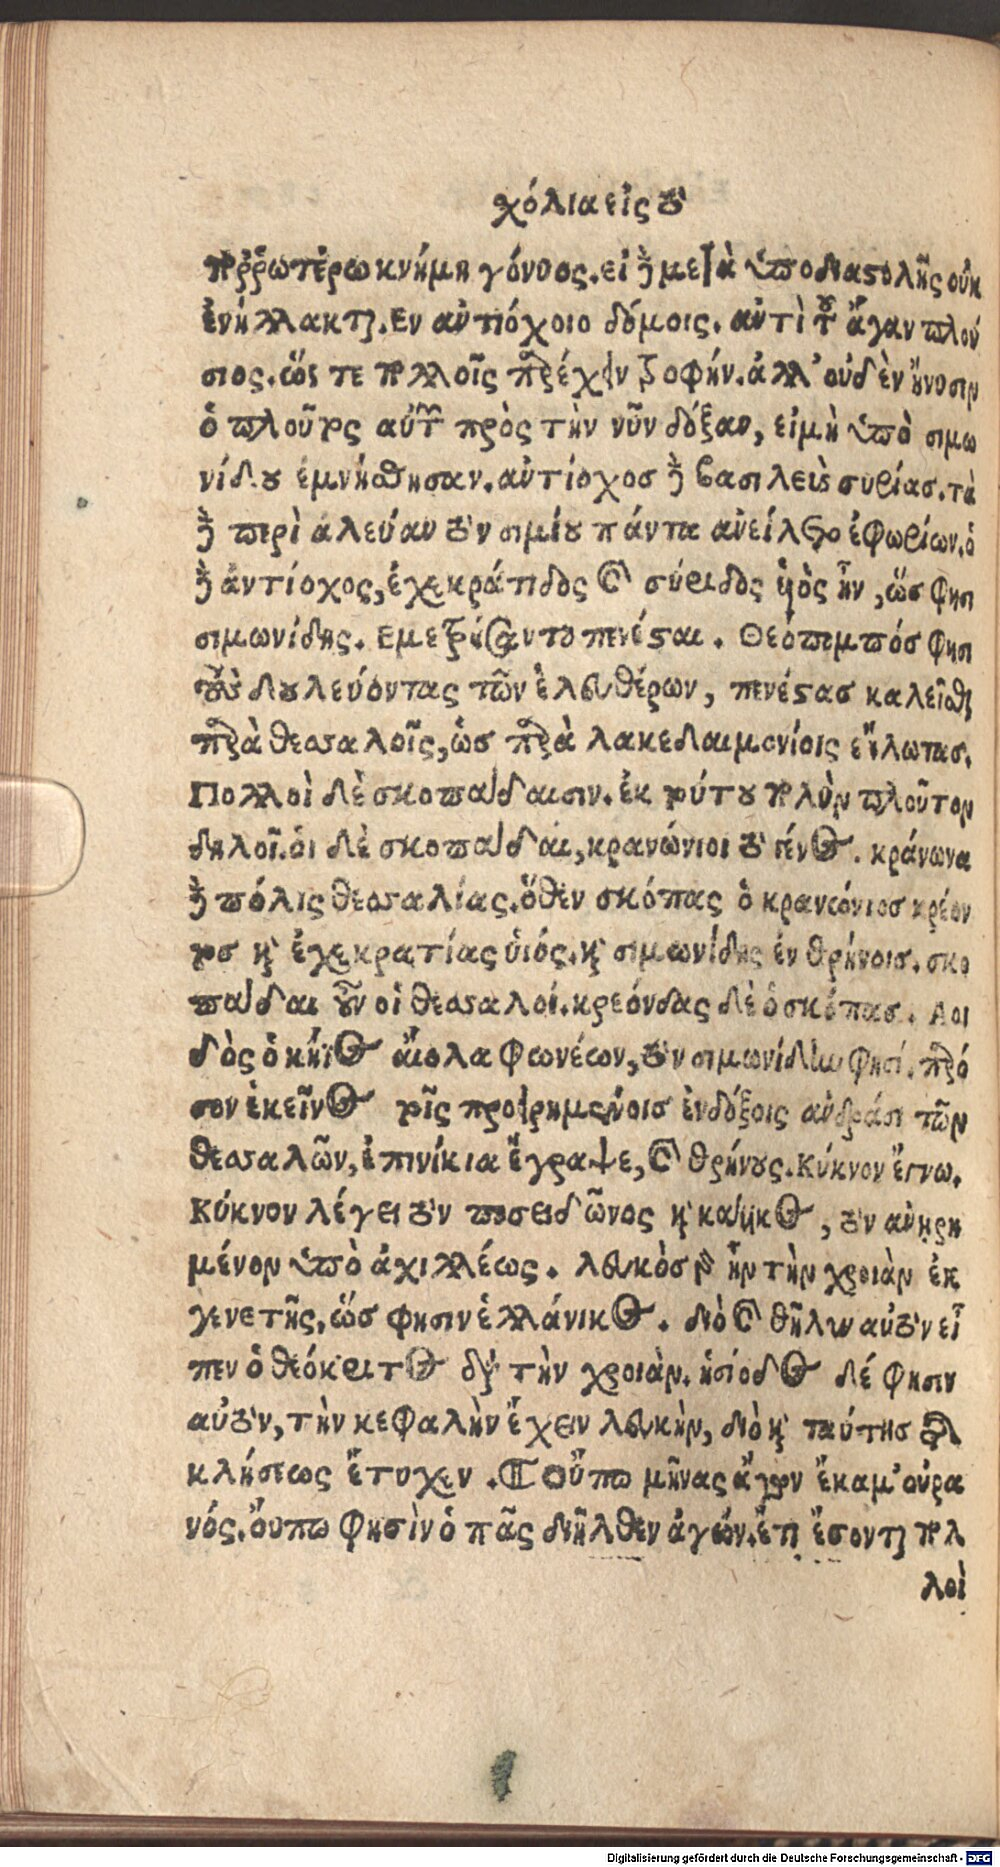 χόλια εἰς τὸ
πορρωτέρω κνήμη γόνυος. εἰ δὲ μετὰ ὑποδιαστολῆς οὐκ
ἐνήλλακται. Εν αντιόχοιο δόμοις. αντὶ τοῦ ἄγαν πλού
σιος. ὥς τε πολλοῖς παρέχειν τροφήν. ἀλλ' οὐδὲν ἤνυσιν
ὁ πλοῦτος αὐτῶν πρὸς τὴν νῦν δόξαν, εἰμὴ ὑπὸ σιμω
νίδου ἐμνήσθησαν. αντίοχοσ δὲ βασιλεὺς συρίασ. τὰ
δὲ περὶ ἀλεύαν τὸν σιμίου πάντα ανείλετο ἐφωρίων. ὁ
δὲ ἀντίοχος, ἐχεκράτιδος καὶ σύριδος ὑιὸς ἦν, ὥσ φησι
σιμωνίδης. Εμετρήσαντο πενέσται. Θεόπεμπόσ φησι
τοὺς δουλεύοντας τῶν ἐλευθέρων, πενέστασ καλεῖσθαι
παρὰ θεσσαλοῖς, ὡσ παρὰ λακεδαιμονίοις εἵλωτασ.
Πολλοὶ δὲ σκοπαίδαισιν. ἐκ τούτου πολὺν πλοῦτον
δηλοῖ. οἱ δὲ σκοπαίδαι, κρανώνιοι τὸ γένος. κράνωνα
δὲ πόλις θεσσαλίας. ὅθεν σκόπας ὁ κρανώνιοσ κρέον
τοσ καὶ ἐχεκρατίας ὑιός. καὶ σιμωνίδης ἐν θρήνοισ. σκο
παίδαι οὖν οἱ θεσσαλοί. κρεόνδας δὲ ὁ σκόπασ. Αοι
δὸς ὁ κήϊος αἴολα φωνέων, τὸν σιμωνίδην φησί. παρό
σον ἐκεῖνος τοῖς προειρημένοισ ἐνδόξοις ανδράσι τῶν
θεσσαλῶν, ἐπινίκια ἔγραψε, καὶ θρήνους. Κύκνον ἔγνω.
Κύκνον λέγει τὸν ποσειδῶνος καὶ καΐκος, τὸν ανηρη
μένον ὑπὸ ἀχιλλέως. λευκὸσ γὰρ ἦν τὴν χροιὰν ἐκ
γενετῆς, ὥσ φησιν ἑλλάνικος. διὸ καὶ θῆλυν αὐτὸν εἶ
πεν ὁ θεόκριτος διὰ τὴν χροιὰν. ἡσίοδος δέ φησιν
αὐτὸν, τὴν κεφαλὴν ἔχειν λευκὴν, διὸ καὶ ταύτησ τῆς
κλήσεως ἔτυχεν. Οὔπω μῆνας ἄγων ἔκαμ' οὐρα
νός. ὄυπω φησὶν ὁ πᾶς διῆλθεν ἀγών. ἔτι ἔσονται πολ
λοὶ
Digitalisierung gefördert durch die Deutsche Forschungsgemeinschaft - DFG